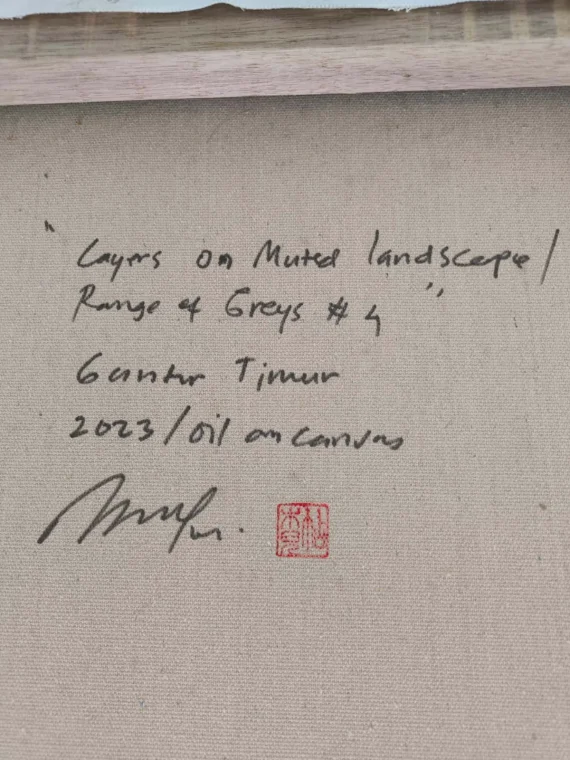 "Layers on Muted landscape/
Range of Greys # 4"
Guntur Timur
2023/oil on canvas